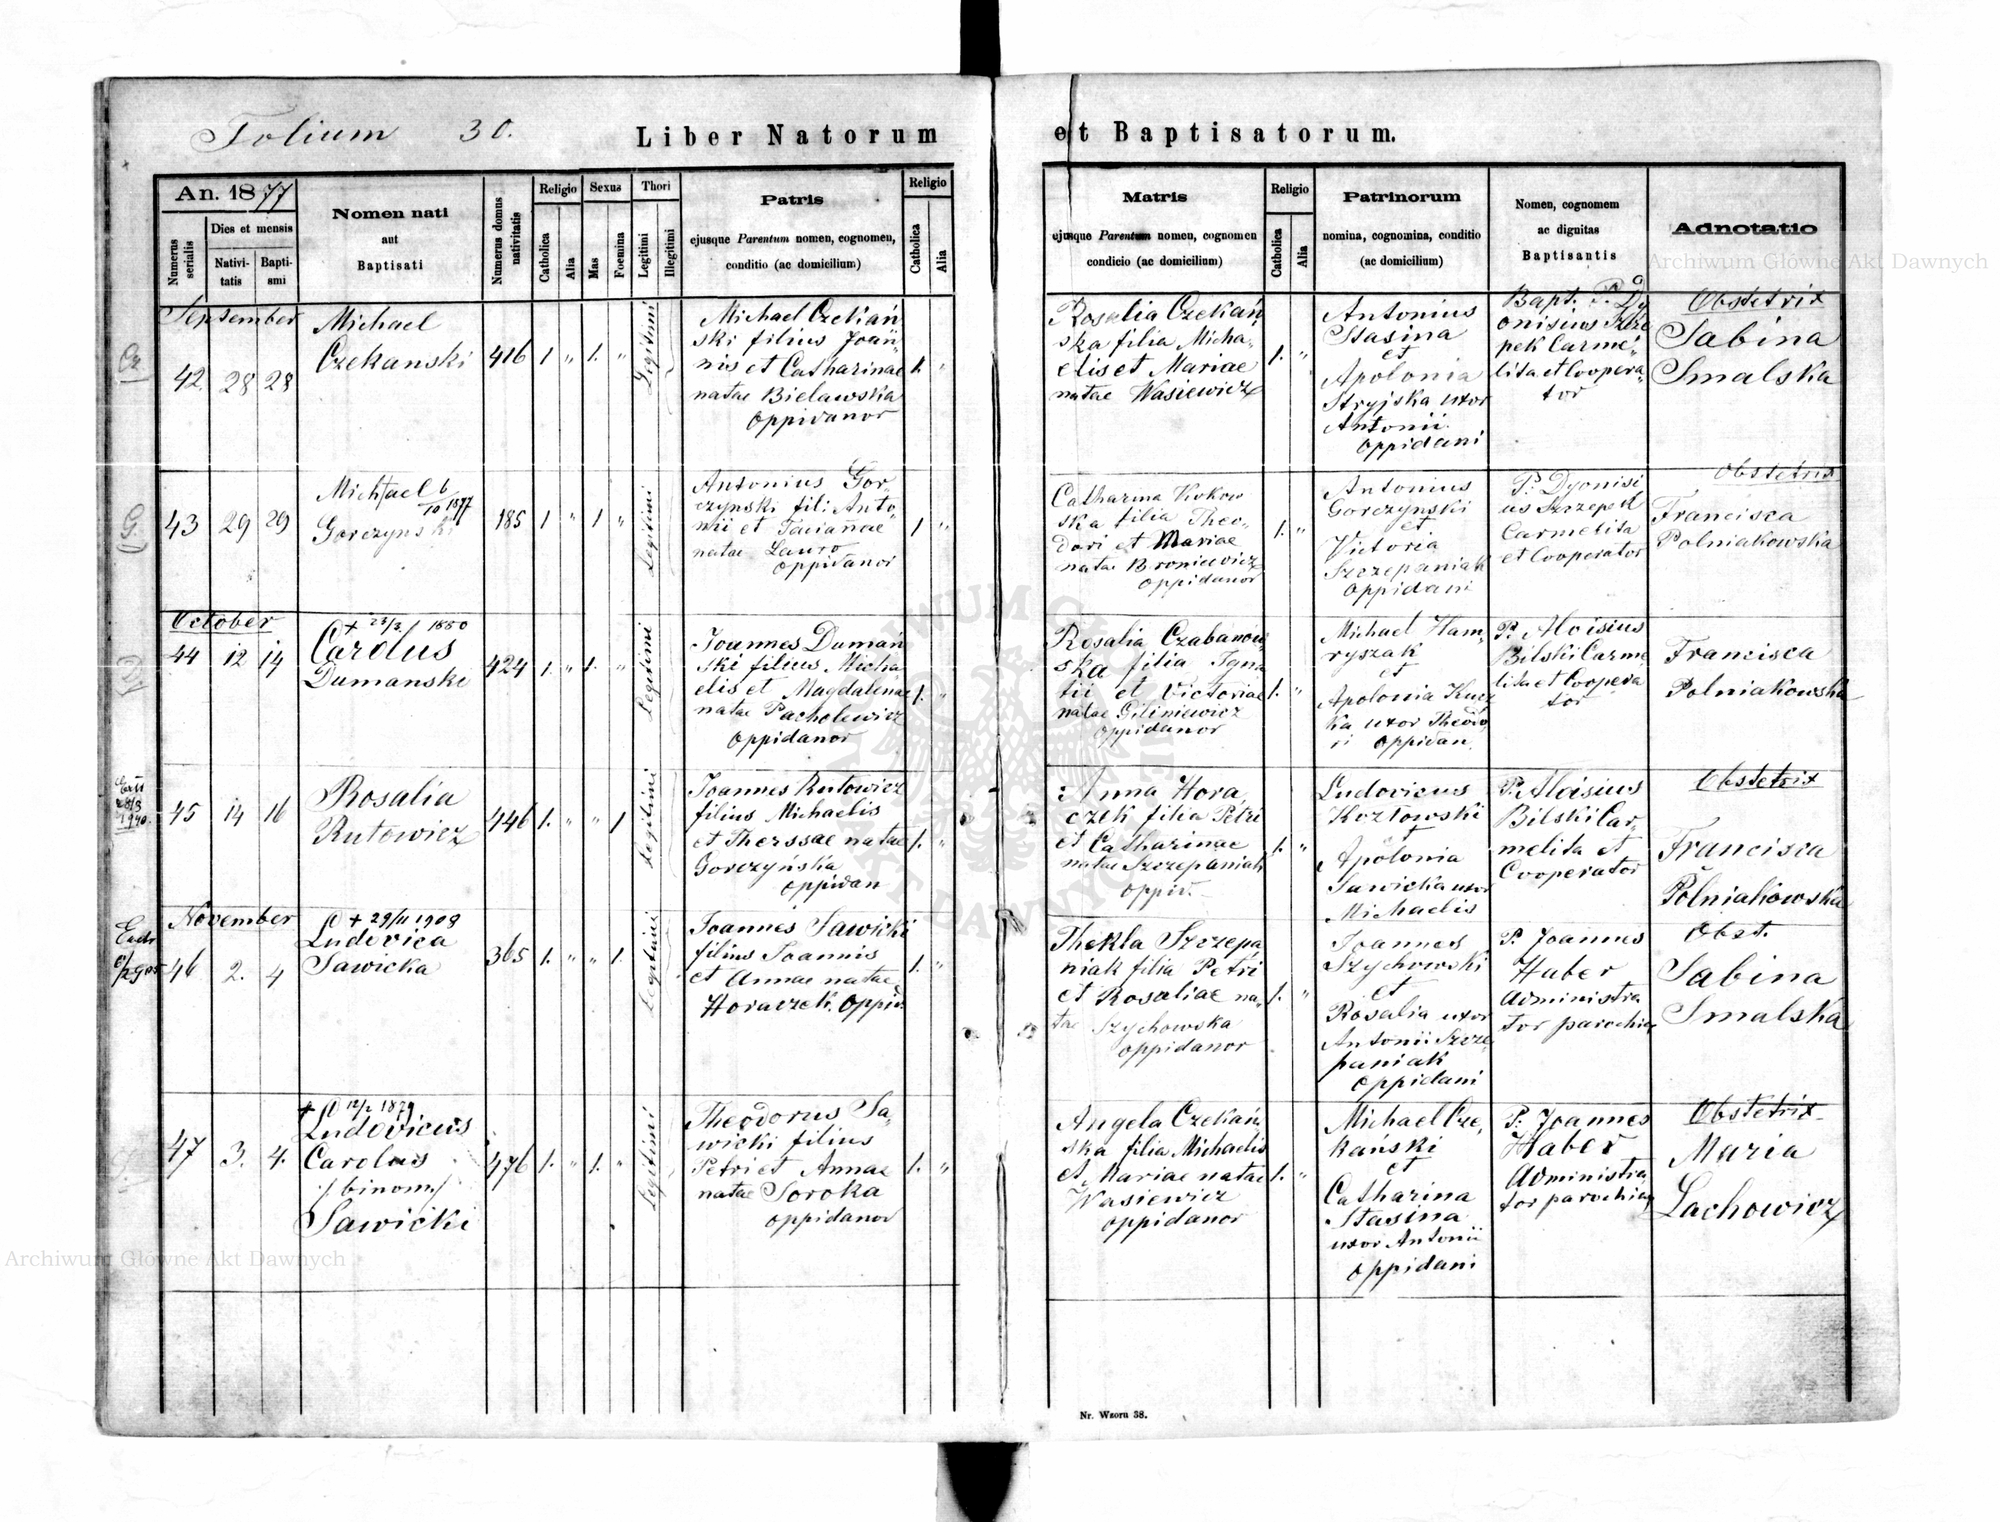 Folium 30.
Liber Natorum et Baptisatorum.
An. 1877
Numerus serialis
Dies et mensis
Nativitatis
Baptismi
Nomen nati
aut
Baptisati
Numerus domus nativitatis
Religio
Catholica
Alia
Sexus
Mas
Foemina
Thori
Legitimi
Illegitimi
Patris
ejusque Parentum nomen, cognomen,
conditio (ac domicilium)
Religio
Catholica
Alia
Matris
ejusque Parentum nomen, cognomen
condicio (ac domicilium)
Religio
Catholica
Alia
Patrinorum
nomina, cognomina, conditio
(ac domicilium)
Nomen, cognomem
ac dignitas
Baptisantis
Adnotatio
September
42 28 28
Michael
Czekanski
416 1 " 1. "
Legitimi
Michael Czekań
ski filius Joan
nis et Catharinae
natae Bielawska
oppidanor
1. "
Rosalia Czekań
ska filia Micha
elis et Mariae
natae Wasiewicz
1. "
Antonius
Stasina
et
Apolonia
Stryjska uxor
Antonii
oppidani
Bapt. P. Dy
onisius Szcze
pek Carme
lita et Coopera
tor
Obstetrix
Sabina
Smalska
43 29 29
Michael
6/10 1877
Gorczynski
185 1 " 1 "
Legitimi
Antonius Gor
czynski fili Anto
nii et Tacianae
natae Lauro
oppidanor
1 "
Catharina Kokow
ska filia Theo
dori et Mariae
natae Broniewicz
oppidanor
1. "
Antonius
Gorczynski
et
Victoria
Szczepaniak
oppidani
P. Dyonisi
us Szczepek
Carmelita
et Cooperator
Obstetrix
Francisca
Polniakowska
October
44 12 14
+ 23/3 1880
Carolus
Dumanski
424 1. " 1. "
Legitimi
Joannes Dumań
ski filius Micha
elis et Magdalenae
natae Pacholewicz
oppidanor
1. "
Rosalia Czabanow
ska filia Igna
tii et Victoriae
natae Giliniewicz
oppidanor
1. "
Michael Ham
ryszak
et
Apolonia Kucz
ka uxor Theodo
ri oppidan.
P. Aloisius
Bilski Carme
lita et Coopera
tor
Francisca
Polniakowska
28/3
1940.
45 14 16
Rosalia
Rutowicz
446 1. " " 1
Legitimi
Joannes Rutowicz
filius Michaelis
et Theressae natae
Gorczyńska
oppidan
1. "
Anna Hora
czek filia Petri
et Catharinae
natae Szczepaniak
oppid.
1. "
Ludovicus
Kozłowski
et
Apolonia
Sawicka uxor
Michaelis
P. Aloisius
Bilski Car
melita et
Cooperator
Obstetrix
Francisca
Polniakowska
November
46 2. 4
+ 29/11 1908
Ludovica
Sawicka
365 1. " " 1.
Legitimi
Joannes Sawicki
filius Joannis
et Annae natae
Horaczek. oppid.
1. "
Thekla Szczepa
niak filia Petri
et Rosaliae na
tae Szychowska
oppidanor
1. "
Joannes
Szychowski
et
Rosalia uxor
Antonii Szcze
paniak
oppidani
P. Joannes
Huber
Administra
tor parochiae
Obst.
Sabina
Smalska
47 3. 4.
+ 12/2 1879
Ludovicus
Carolus
/binom./
Sawicki
476 1. " 1. "
Legitimi
Theodorus Sa
wicki filius
Petri et Annae
natae Soroka
oppidanor
1. "
Angela Czekań
ska filia Michaelis
et Mariae natae
Wasiewicz
oppidanor
1. "
Michael Cze
kański
et
Catharina
Stasina
uxor Antonii
oppidani
P. Joannes
Haber
Administra
tor parochiae
Obstetrix
Maria
Lachowicz
Nr. Wzoru 38.
Archiwum Główne Akt Dawnych
Archiwum Główne Akt Dawnych